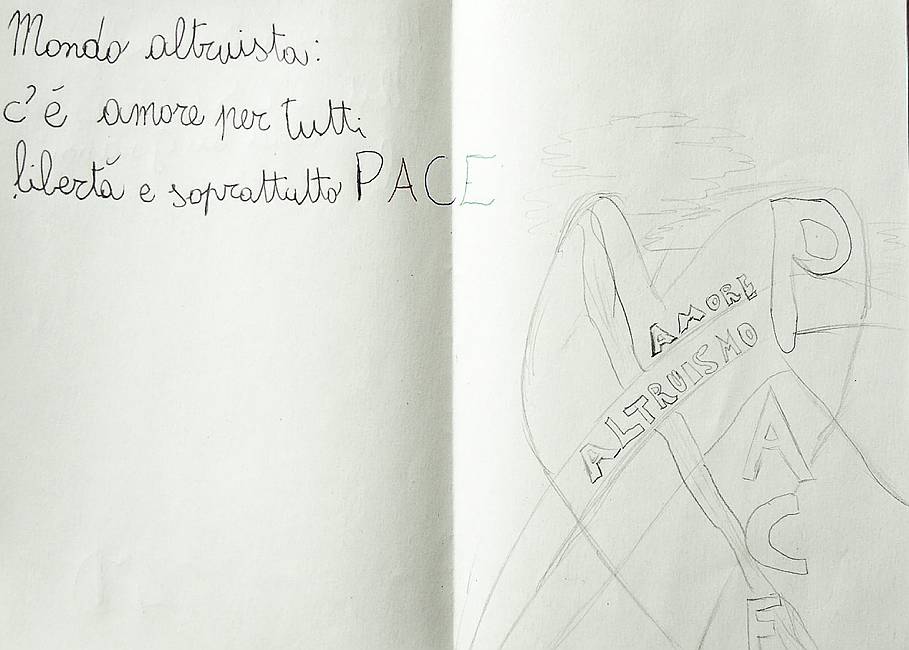 Mondo altruista:
c'é amore per tutti
libertá e soprattutto PACE
AMORE
ALTRUISMO
PACE